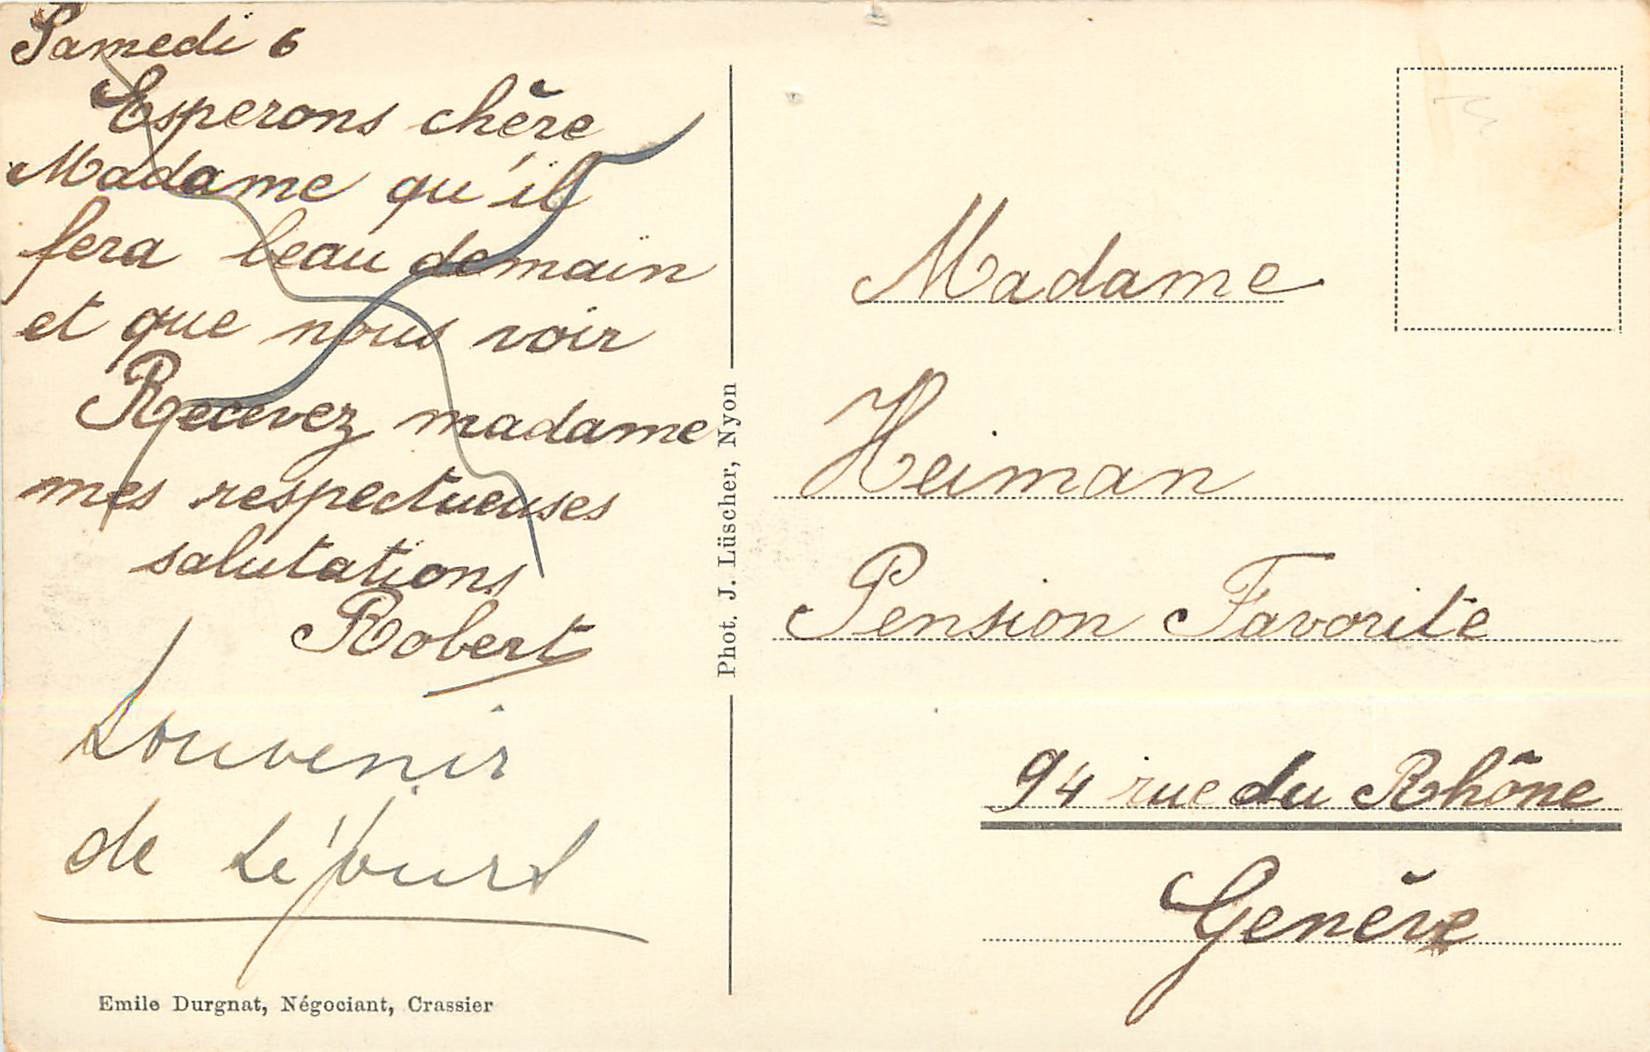 Samedi 6
Esperons chère
Madame qu'il
fera beau demain
et que nous voir
Recevez madame
mes respectueuses
salutations
Robert
Souvenir
de Séjour
Emile Durgnat, Négociant, Crassier
Phot. J. Lüscher, Nyon
Madame
Heiman
Pension Favorite
94 rue du Rhône
Genève